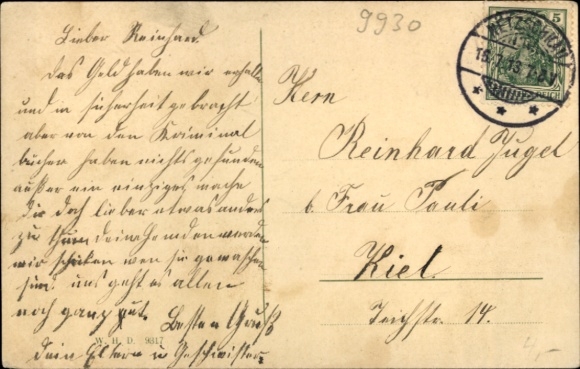 9930
5
15.7.13.7-8V
Lieber Reinhard.
das Geld haben wir erhalten
und in sicherheit gebracht
aber von den Kriminal
bücher haben nichts gefunden
außer ein einziges mache
Du doch lieber etwas anders
zu thum deine Hemden werden
wir schicken wen sie gewaschen
sind. uns geht es allen
noch ganz gut. Besten Gruß
dein Eltern u Geschwister
W. H. D. 9317
Herrn
Reinhard Jugel
b. Frau Pauli
Kiel.
Teichstr. 14.
4,-